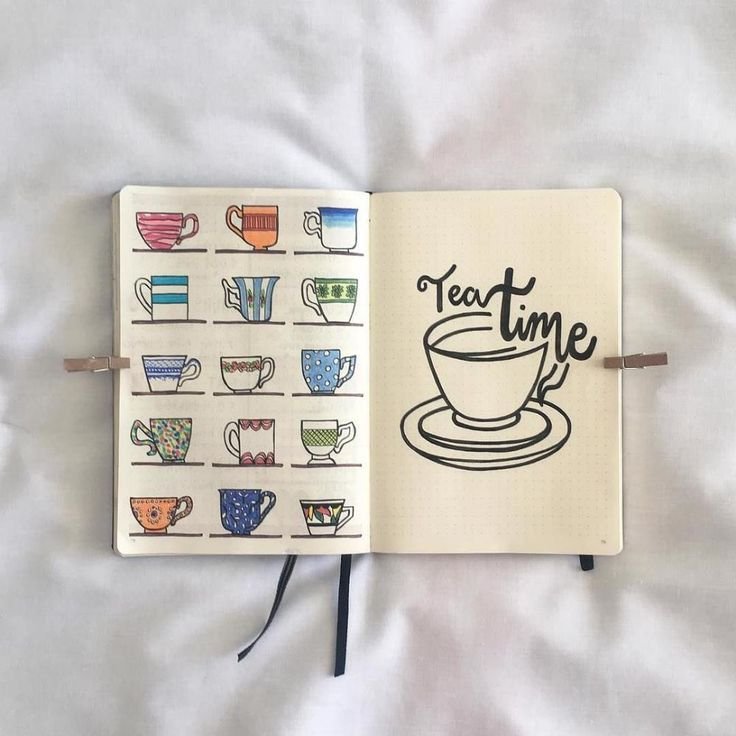 Tea time